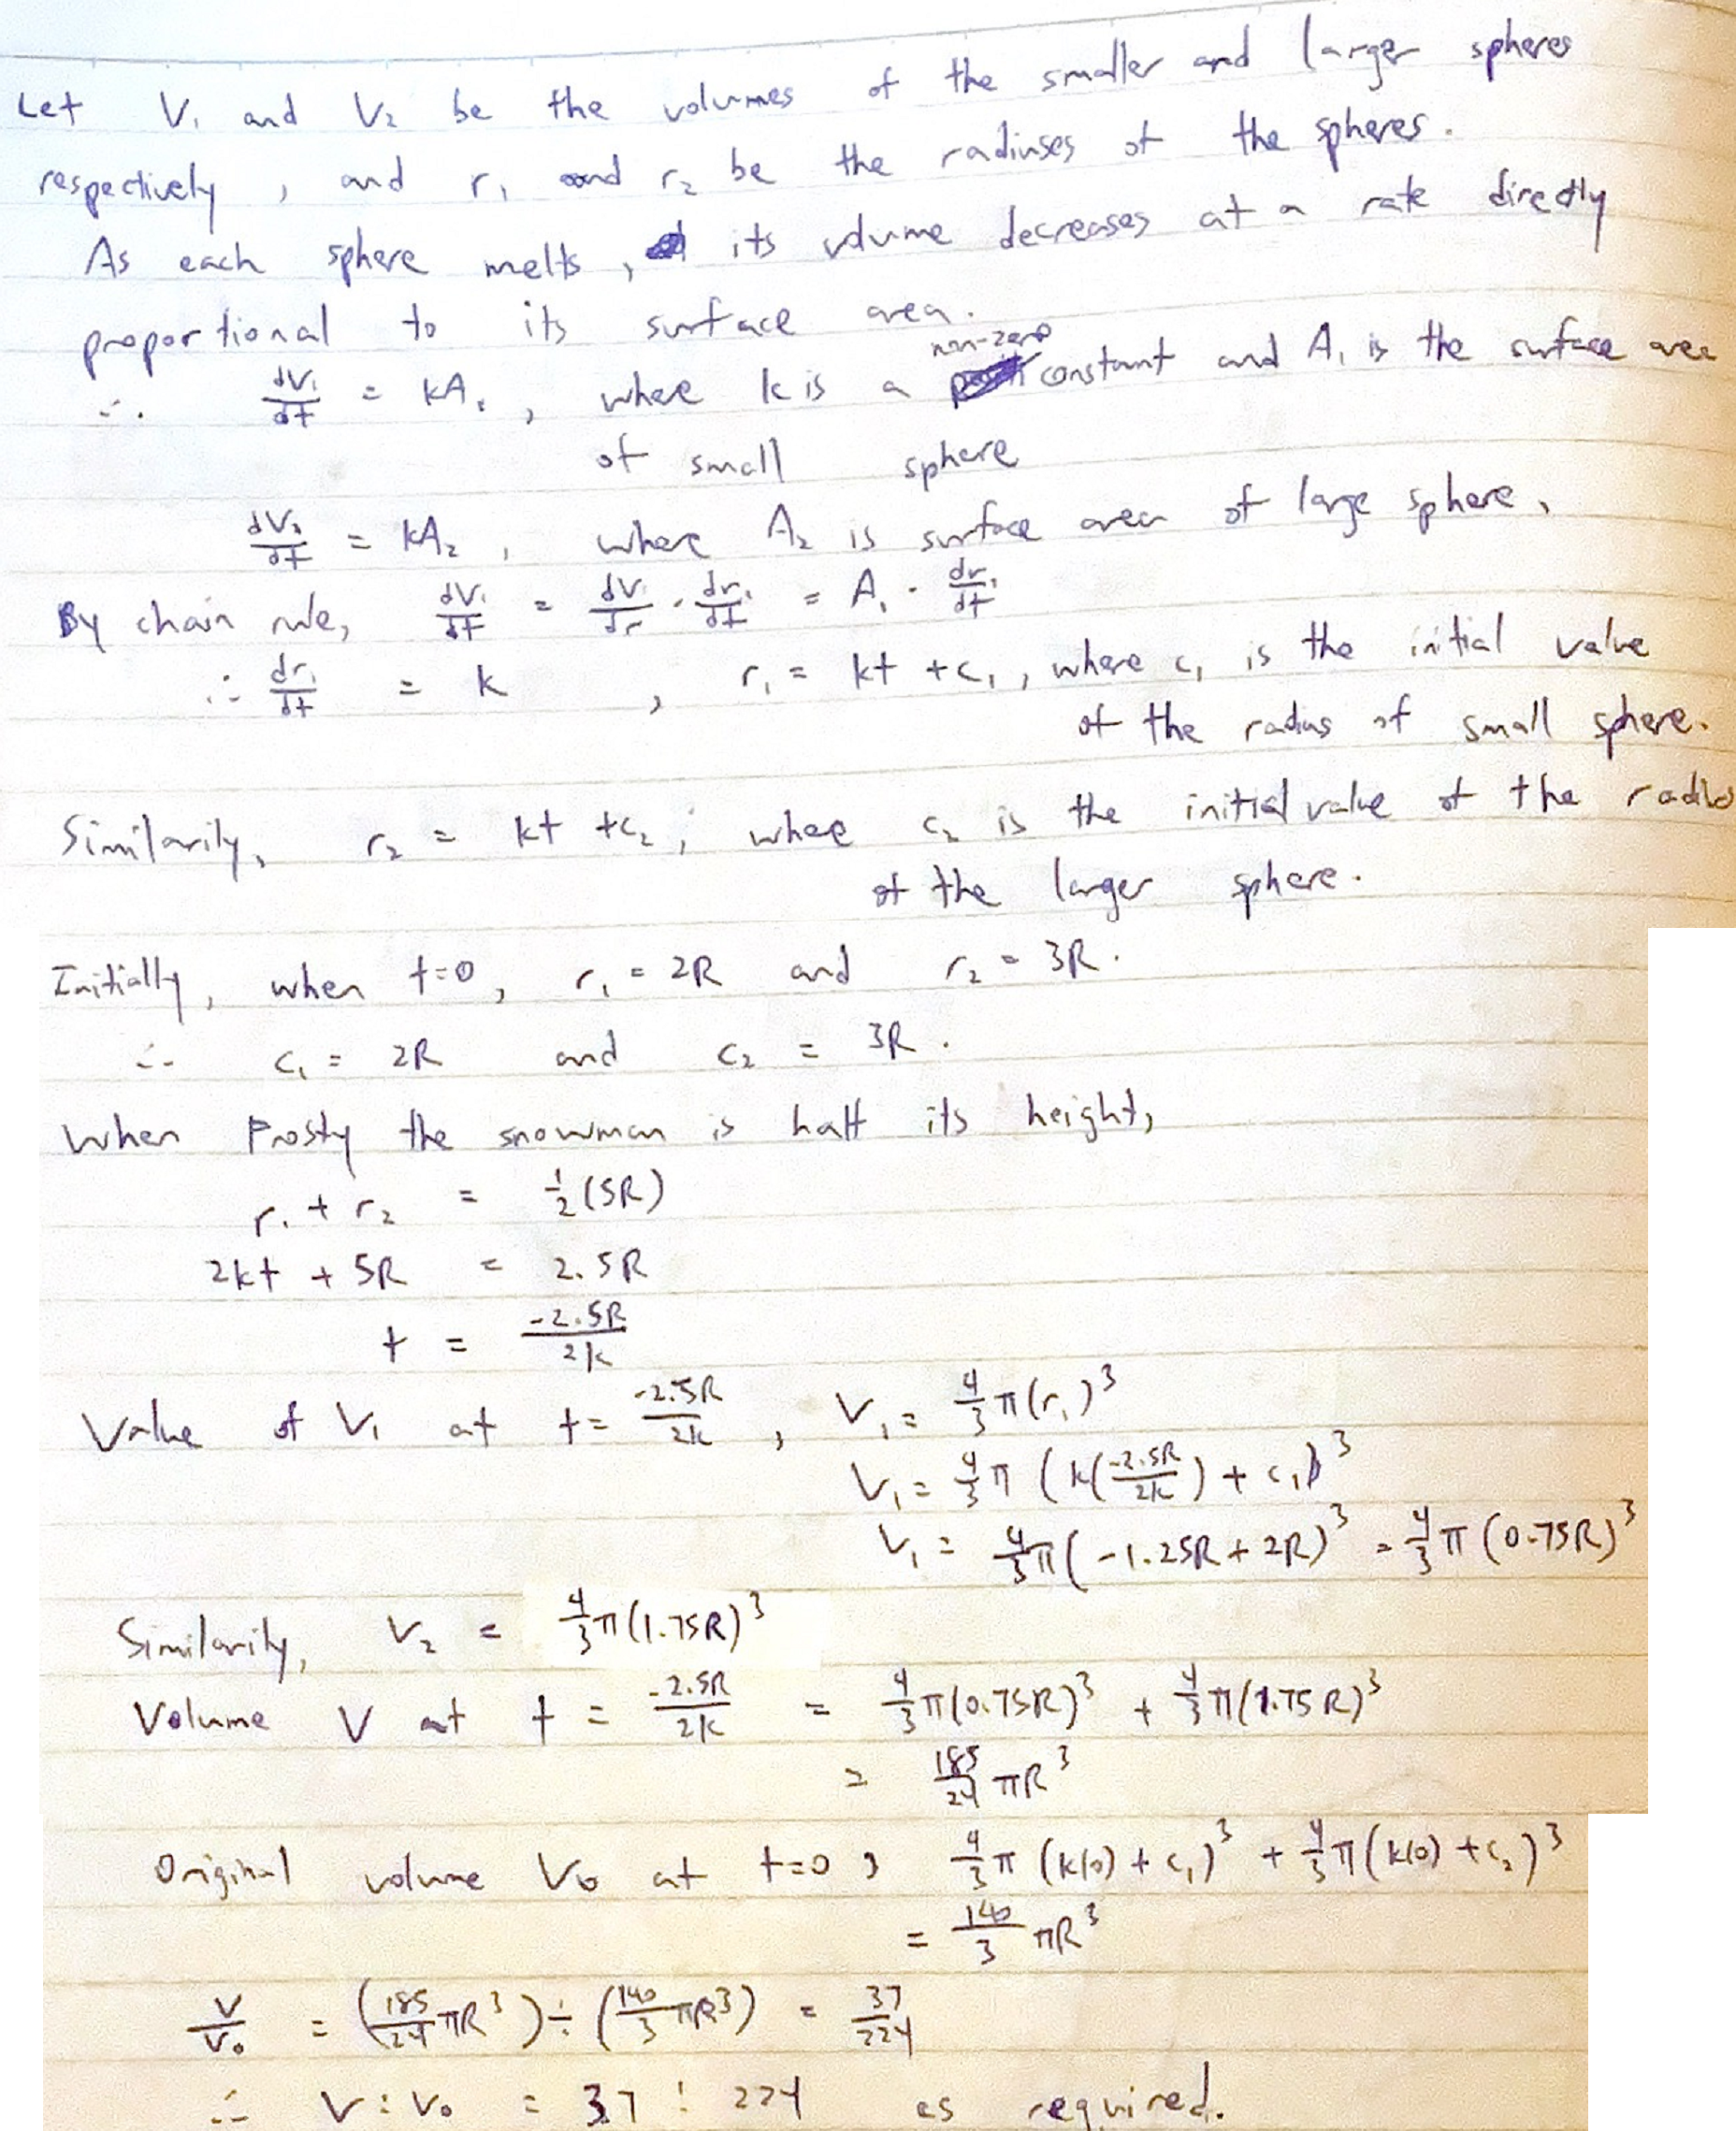 Let V₁ and V₂ be the volumes of the smaller and larger spheres
respectively, and r₁ and r₂ be the radiuses of the spheres.
As each sphere melts, its volume decreases at a rate directly
proportional to its surface area.
∴ dV₁/dt = kA₁, where k is a non-zero constant and A₁ is the surface area
of small sphere
dV₂/dt = kA₂, where A₂ is surface area of large sphere,
By chain rule, dV₁/dt = dV₁/dr · dr₁/dt = A₁ · dr₁/dt
∴ dr₁/dt = k, r₁ = kt + c₁, where c₁ is the initial value
of the radius of small sphere.
Similarily, r₂ = kt + c₂, where c₂ is the initial value of the radius
of the larger sphere.
Initially, when t=0, r₁ = 2R and r₂ = 3R.
∴ c₁ = 2R and c₂ = 3R.
When Frosty the snowman is half its height,
r₁ + r₂ = 1/2 (5R)
2kt + 5R = 2.5R
t = -2.5R/2k
Value of V₁ at t = -2.5R/2k, V₁ = 4/3 π(r₁)³
V₁ = 4/3 π (k(-2.5R/2k) + c₁)³
V₁ = 4/3 π(-1.25R + 2R)³ = 4/3 π (0.75R)³
Similarily, V₂ = 4/3 π(1.75R)³
Volume V at t = -2.5R/2k = 4/3 π(0.75R)³ + 4/3 π(1.75R)³
= 185/24 πR³
Original volume V₀ at t=0, 4/3 π (k(0) + c₁)³ + 4/3 π(k(0) + c₂)³
= 140/3 πR³
V/V₀ = (185/24 πR³) ÷ (140/3 πR³) = 37/224
∴ V : V₀ = 37 : 224 as required.